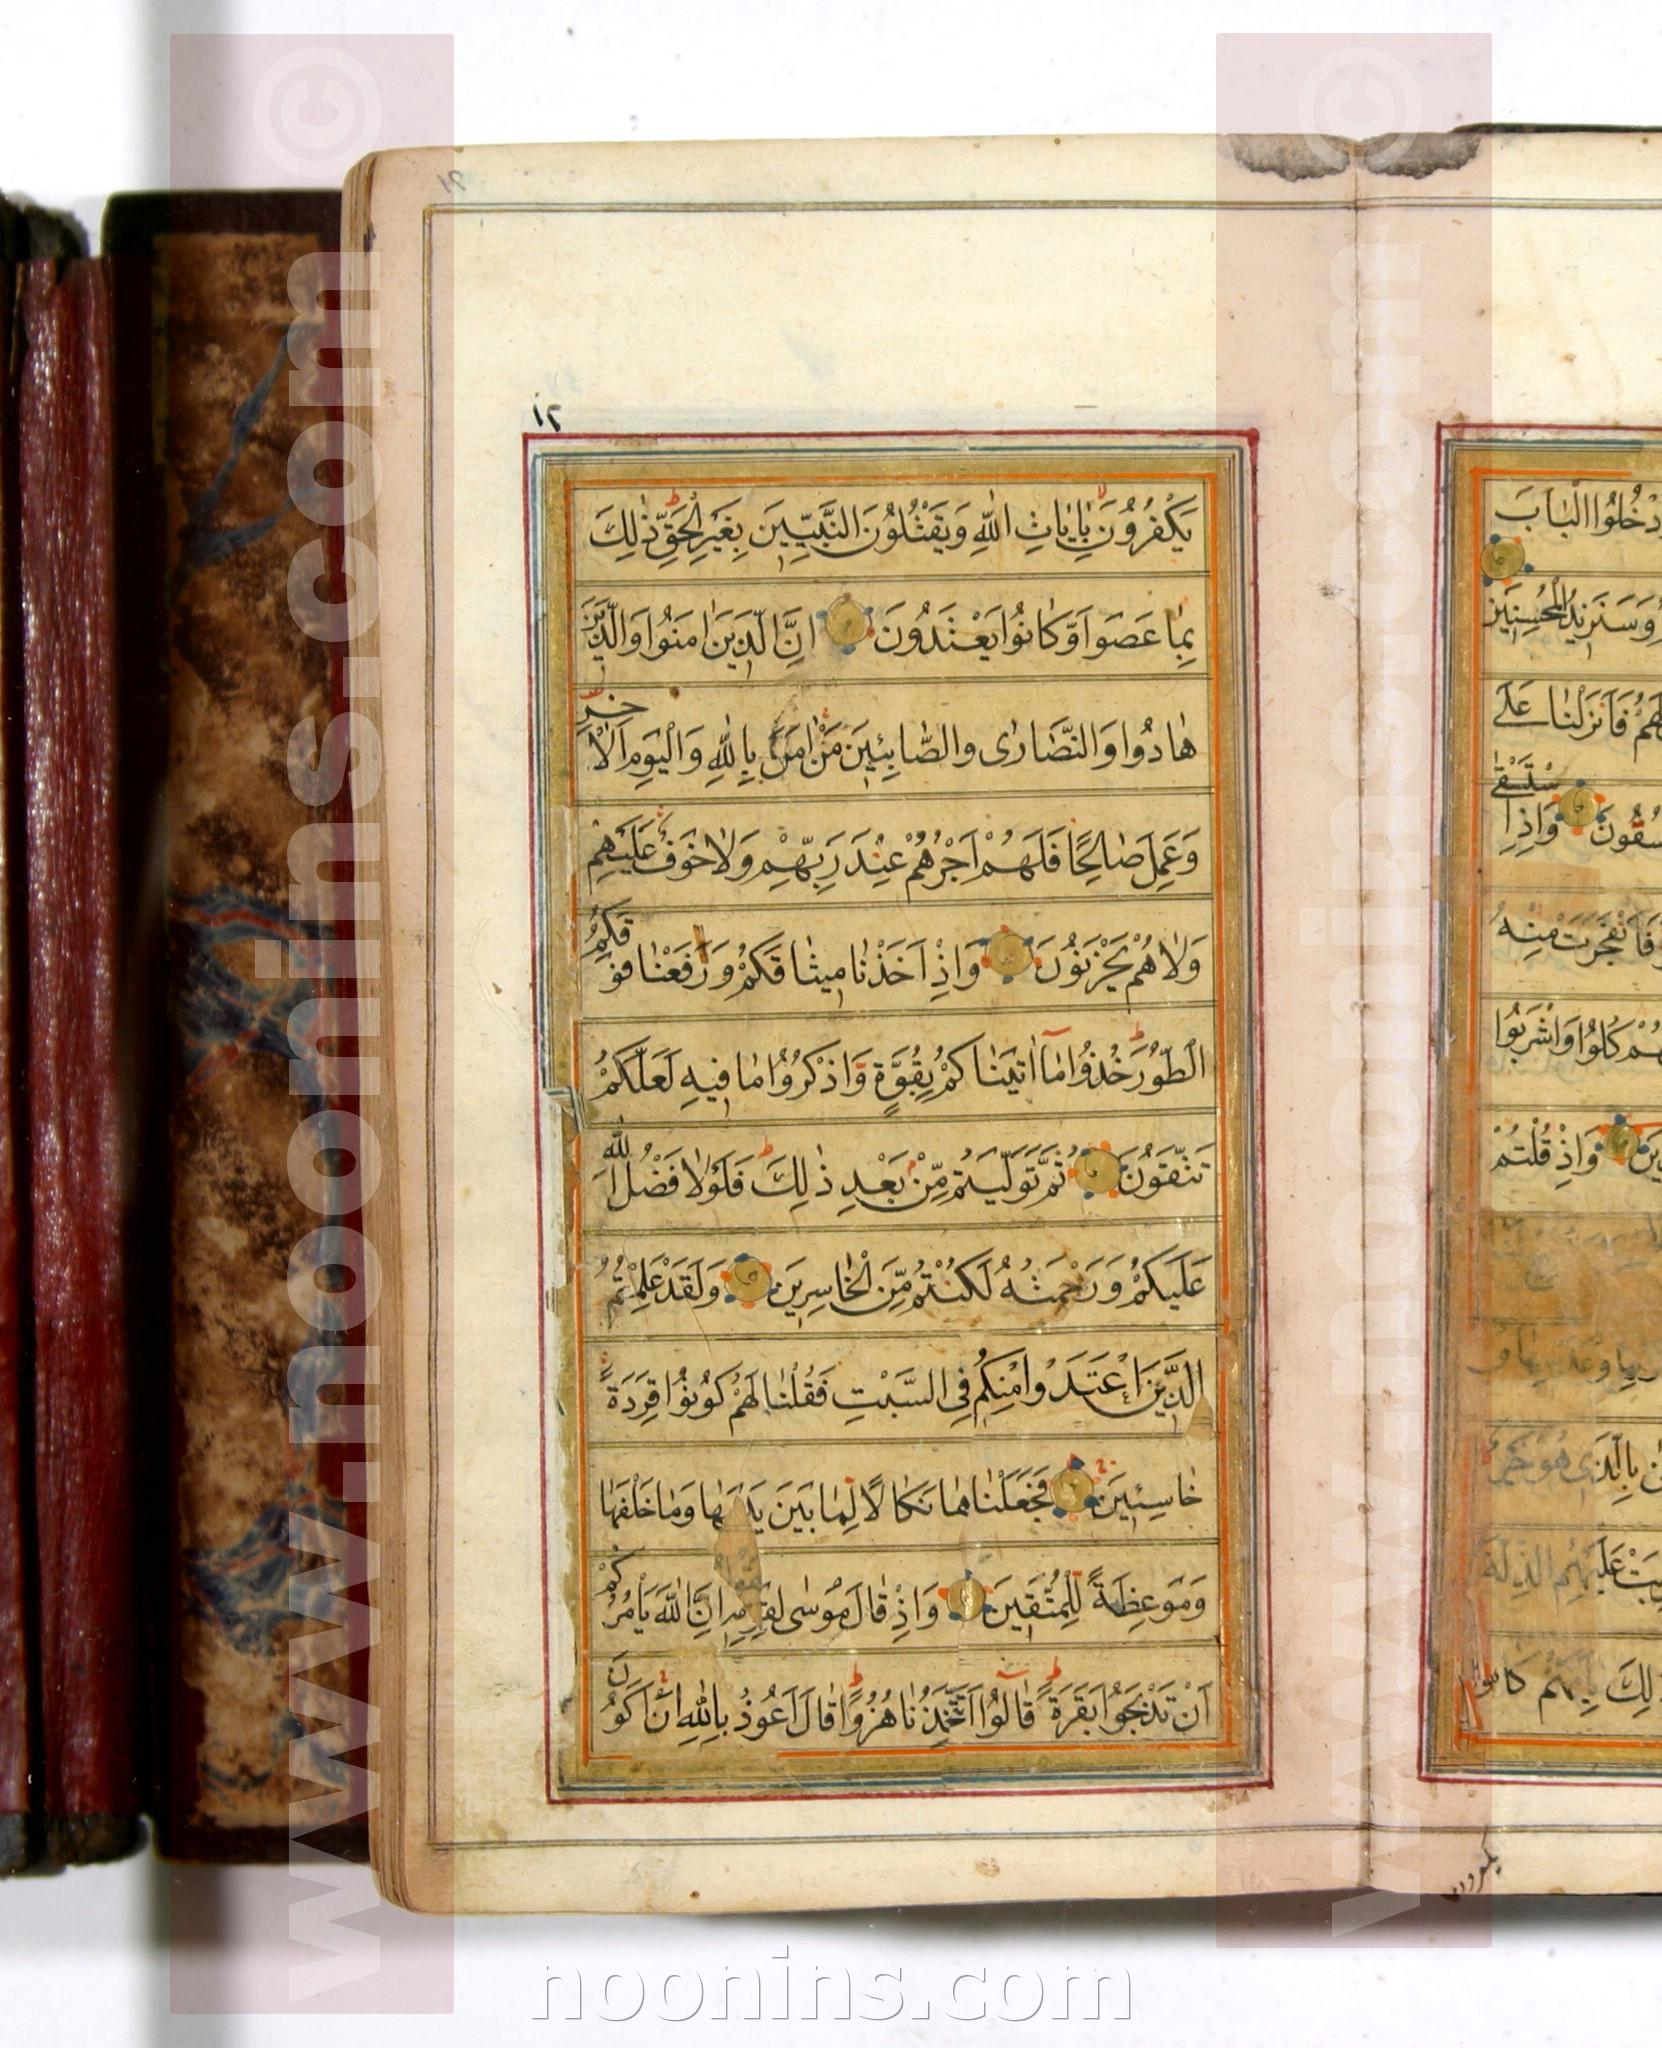 ١٢
يَكْفُرُونَ بِاٰيٰاتِ اللّٰهِ وَيَقْتُلُونَ النَّبِيّينَ بِغَيْرِ الْحَقِّ ذٰلِكَ
بِمٰا عَصَوْا وَكٰانُوا يَعْتَدُونَ اِنَّ الَّذينَ اٰمَنُوا وَالَّذينَ
هٰادُوا وَالنَّصٰارٰى وَالصّٰابِئينَ مَنْ اٰمَنَ بِاللّٰهِ وَالْيَوْمِ الْاٰخِرِ
وَعَمِلَ صٰالِحًا فَلَهُمْ اَجْرُهُمْ عِنْدَ رَبِّهِمْ وَلٰا خَوْفٌ عَلَيْهِمْ
وَلٰا هُمْ يَحْزَنُونَ وَاِذْ اَخَذْنٰا ميثٰاقَكُمْ وَرَفَعْنٰا فَوْقَكُمُ
الطُّورَ خُذُوا مٰا اٰتَيْنٰاكُمْ بِقُوَّةٍ وَاذْكُرُوا مٰا فيهِ لَعَلَّكُمْ
تَتَّقُونَ ثُمَّ تَوَلَّيْتُمْ مِنْ بَعْدِ ذٰلِكَ فَلَوْلٰا فَضْلُ اللّٰهِ
عَلَيْكُمْ وَرَحْمَتُهُ لَكُنْتُمْ مِنَ الْخٰاسِرينَ وَلَقَدْ عَلِمْتُمُ
الَّذينَ اعْتَدَوْا مِنْكُمْ فِي السَّبْتِ فَقُلْنٰا لَهُمْ كُونُوا قِرَدَةً
خٰاسِئينَ فَجَعَلْنٰاهٰا نَكٰالًا لِمٰا بَيْنَ يَدَيْهٰا وَمٰا خَلْفَهٰا
وَمَوْعِظَةً لِلْمُتَّقينَ وَاِذْ قٰالَ مُوسٰى لِقَوْمِهِ اِنَّ اللّٰهَ يَأْمُرُكُمْ
اَنْ تَذْبَحُوا بَقَرَةً قٰالُوا اَتَتَّخِذُنٰا هُزُوًا قٰالَ اَعُوذُ بِاللّٰهِ اَنْ اَكُونَ
ادْخُلُوا الْبٰابَ
وَسَنَزيدُ الْمُحْسِنينَ
لَهُمْ فَاَنْزَلْنٰا عَلَى
يَفْسُقُونَ وَاِذِ اسْتَسْقٰى
فَانْفَجَرَتْ مِنْهُ
كُلُوا وَاشْرَبُوا
وَاِذْ قُلْتُمْ
بِالَّذي هُوَ خَيْرٌ
عَلَيْهِمُ الذِّلَّةُ
ذٰلِكَ بِاَنَّهُمْ كٰانُوا
يكفرون
www.noonins.com ©
www.noonins.com ©
noonins.com